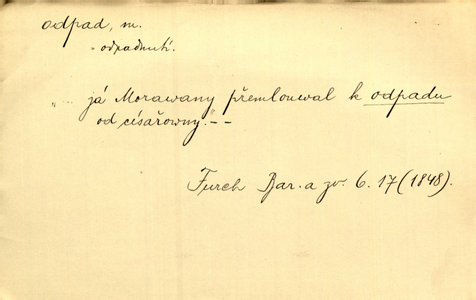 odpad, m.
= odpadnutí.
"... já Morawany přemlouwal k odpadu
od císařowny." --
Furch Bar. a zv. 6. 17 (1848).